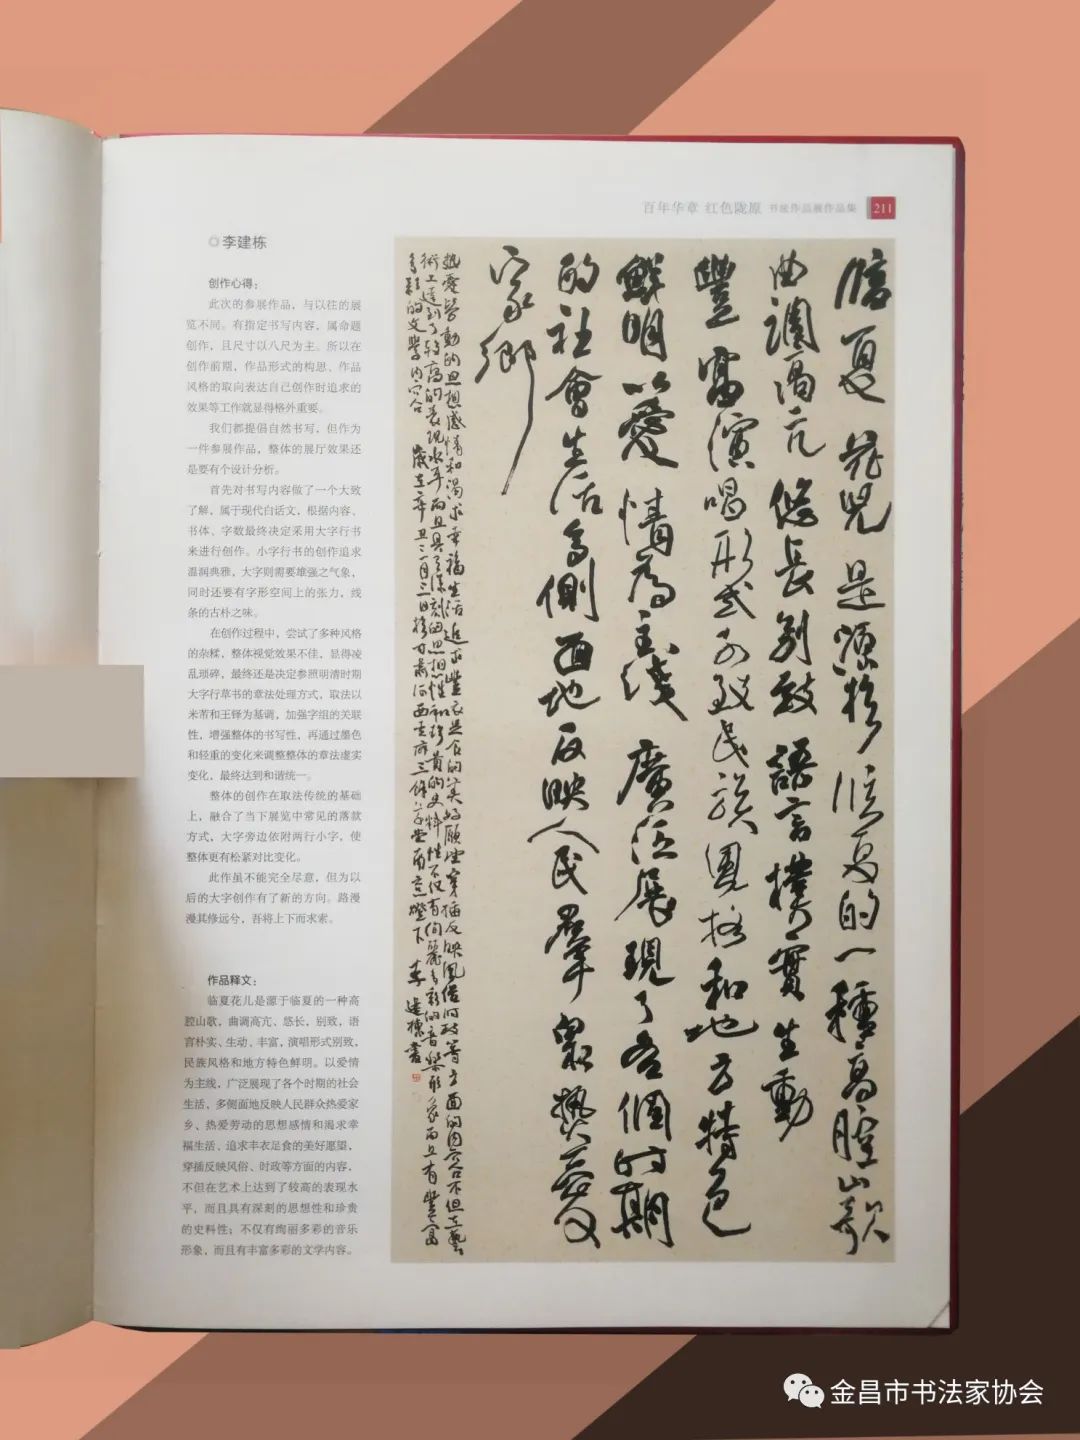 百年华章 红色陇原 书法作品展作品集 211
◎李建栋
创作心得：
此次的参展作品，与以往的展
览不同。有指定书写内容，属命题
创作，且尺寸以八尺为主。所以在
创作前期，作品形式的构思、作品
风格的取向表达自己创作时追求的
效果等工作就显得格外重要。
我们都提倡自然书写，但作为
一件参展作品，整体的展厅效果还
是要有个设计分析。
首先对书写内容做了一个大致
了解，属于现代白话文，根据内容、
书体、字数最终决定采用大字行书
来进行创作。小字行书的创作追求
温润典雅，大字则需要雄强之气象，
同时还要有字形空间上的张力，线
条的古朴之味。
在创作过程中，尝试了多种风格
的杂糅，整体视觉效果不佳，显得凌
乱琐碎，最终还是决定参照明清时期
大字行草书的章法处理方式，取法以
米芾和王铎为基调，加强字组的关联
性，增强整体的书写性，再通过墨色
和轻重的变化来调整整体的章法虚实
变化，最终达到和谐统一。
整体的创作在取法传统的基础
上，融合了当下展览中常见的落款
方式，大字旁边依附两行小字，使
整体更有松紧对比变化。
此作虽不能完全尽意，但为以
后的大字创作有了新的方向。路漫
漫其修远兮，吾将上下而求索。
作品释文：
临夏花儿是源于临夏的一种高
腔山歌，曲调高亢、悠长，别致，语
言朴实、生动、丰富，演唱形式别致，
民族风格和地方特色鲜明。以爱情
为主线，广泛展现了各个时期的社会
生活，多侧面地反映人民群众热爱家
乡、热爱劳动的思想感情和渴求幸
福生活、追求丰衣足食的美好愿望，
穿插反映风俗、时政等方面的内容，
不但在艺术上达到了较高的表现水
平，而且具有深刻的思想性和珍贵
的史料性；不仅有绚丽多彩的音乐
形象，而且有丰富多彩的文学内容。
臨夏花兒是源於臨夏的一種高腔山歌
曲調高亢悠長別致語言樸實生動
豐富演唱形式別致民族風格和地方特色
鮮明以愛情為主线廣泛展現了各個时期
的社會生活多側面地反映人民羣眾熱愛
家鄉
熱愛勞動的思想感情和渴求幸福生活追求豐衣足食的美好願望穿插反映風俗时政等方面的内容不但在藝
術上達到了較高的表現水平而且具有深刻的思想性和珍貴的史料性不仅有絢麗多彩的音樂形象而且有豐富
多彩的文學内容
歲在辛丑二月三日於甘肅河西 三 堂南窓燈下李建棟書
金昌市书法家协会